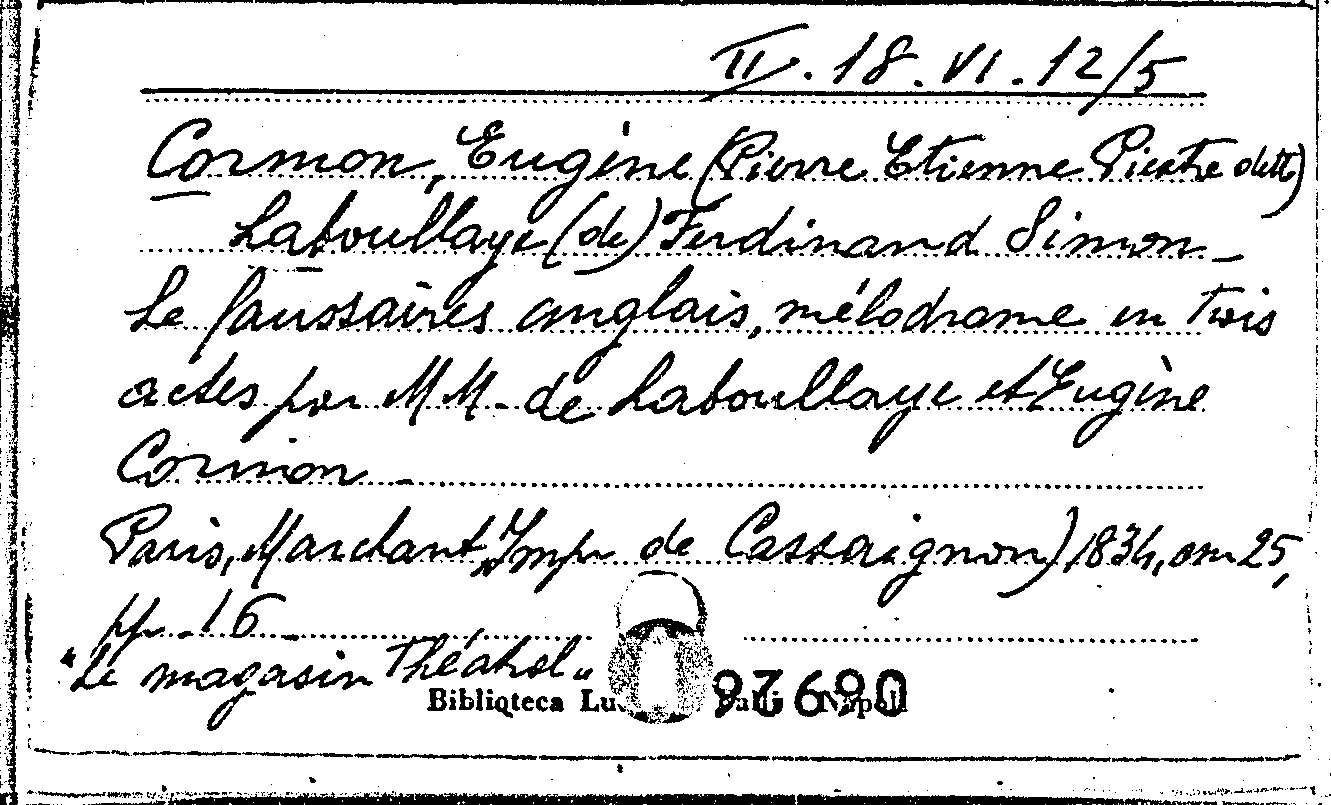 II. 18. VI. 12/5
Cormon, Eugène (Pierre Etienne Piestre detto)
Laboullaye (de) Ferdinand Simon -
Le faussaires anglais, mélodrame en trois
actes par MM. de Laboullaye et Eugène
Cormon -
Paris, Marchant, Impr. de Cassaignon) 1834, cm 25,
pp. 16 -
"Le magasin Théatral"
Biblioteca